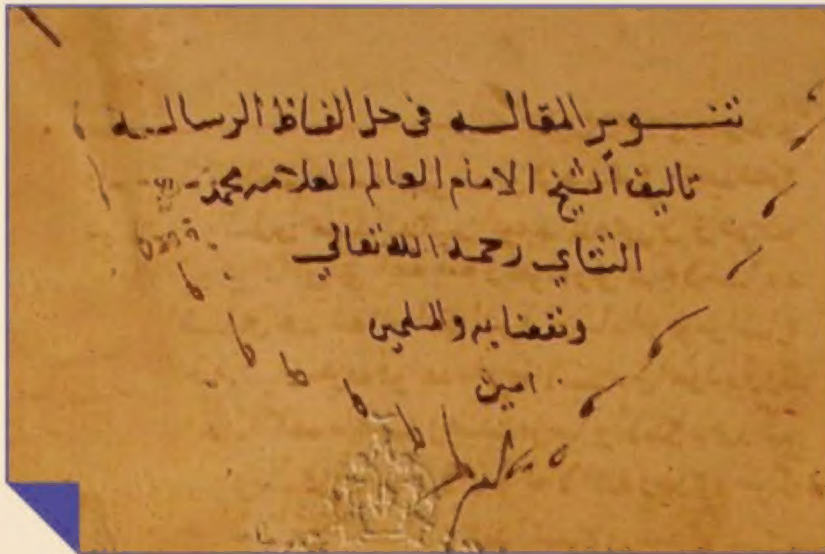 تنوير المقاله فى حل الفاظ الرساله
تاليف الشيخ الامام العالم العلامه محمد
التتاي رحمه الله تعالي
ونفعنا به والمسلمين
امين